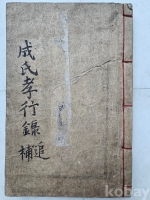 成氏孝行錄
追補
kobay